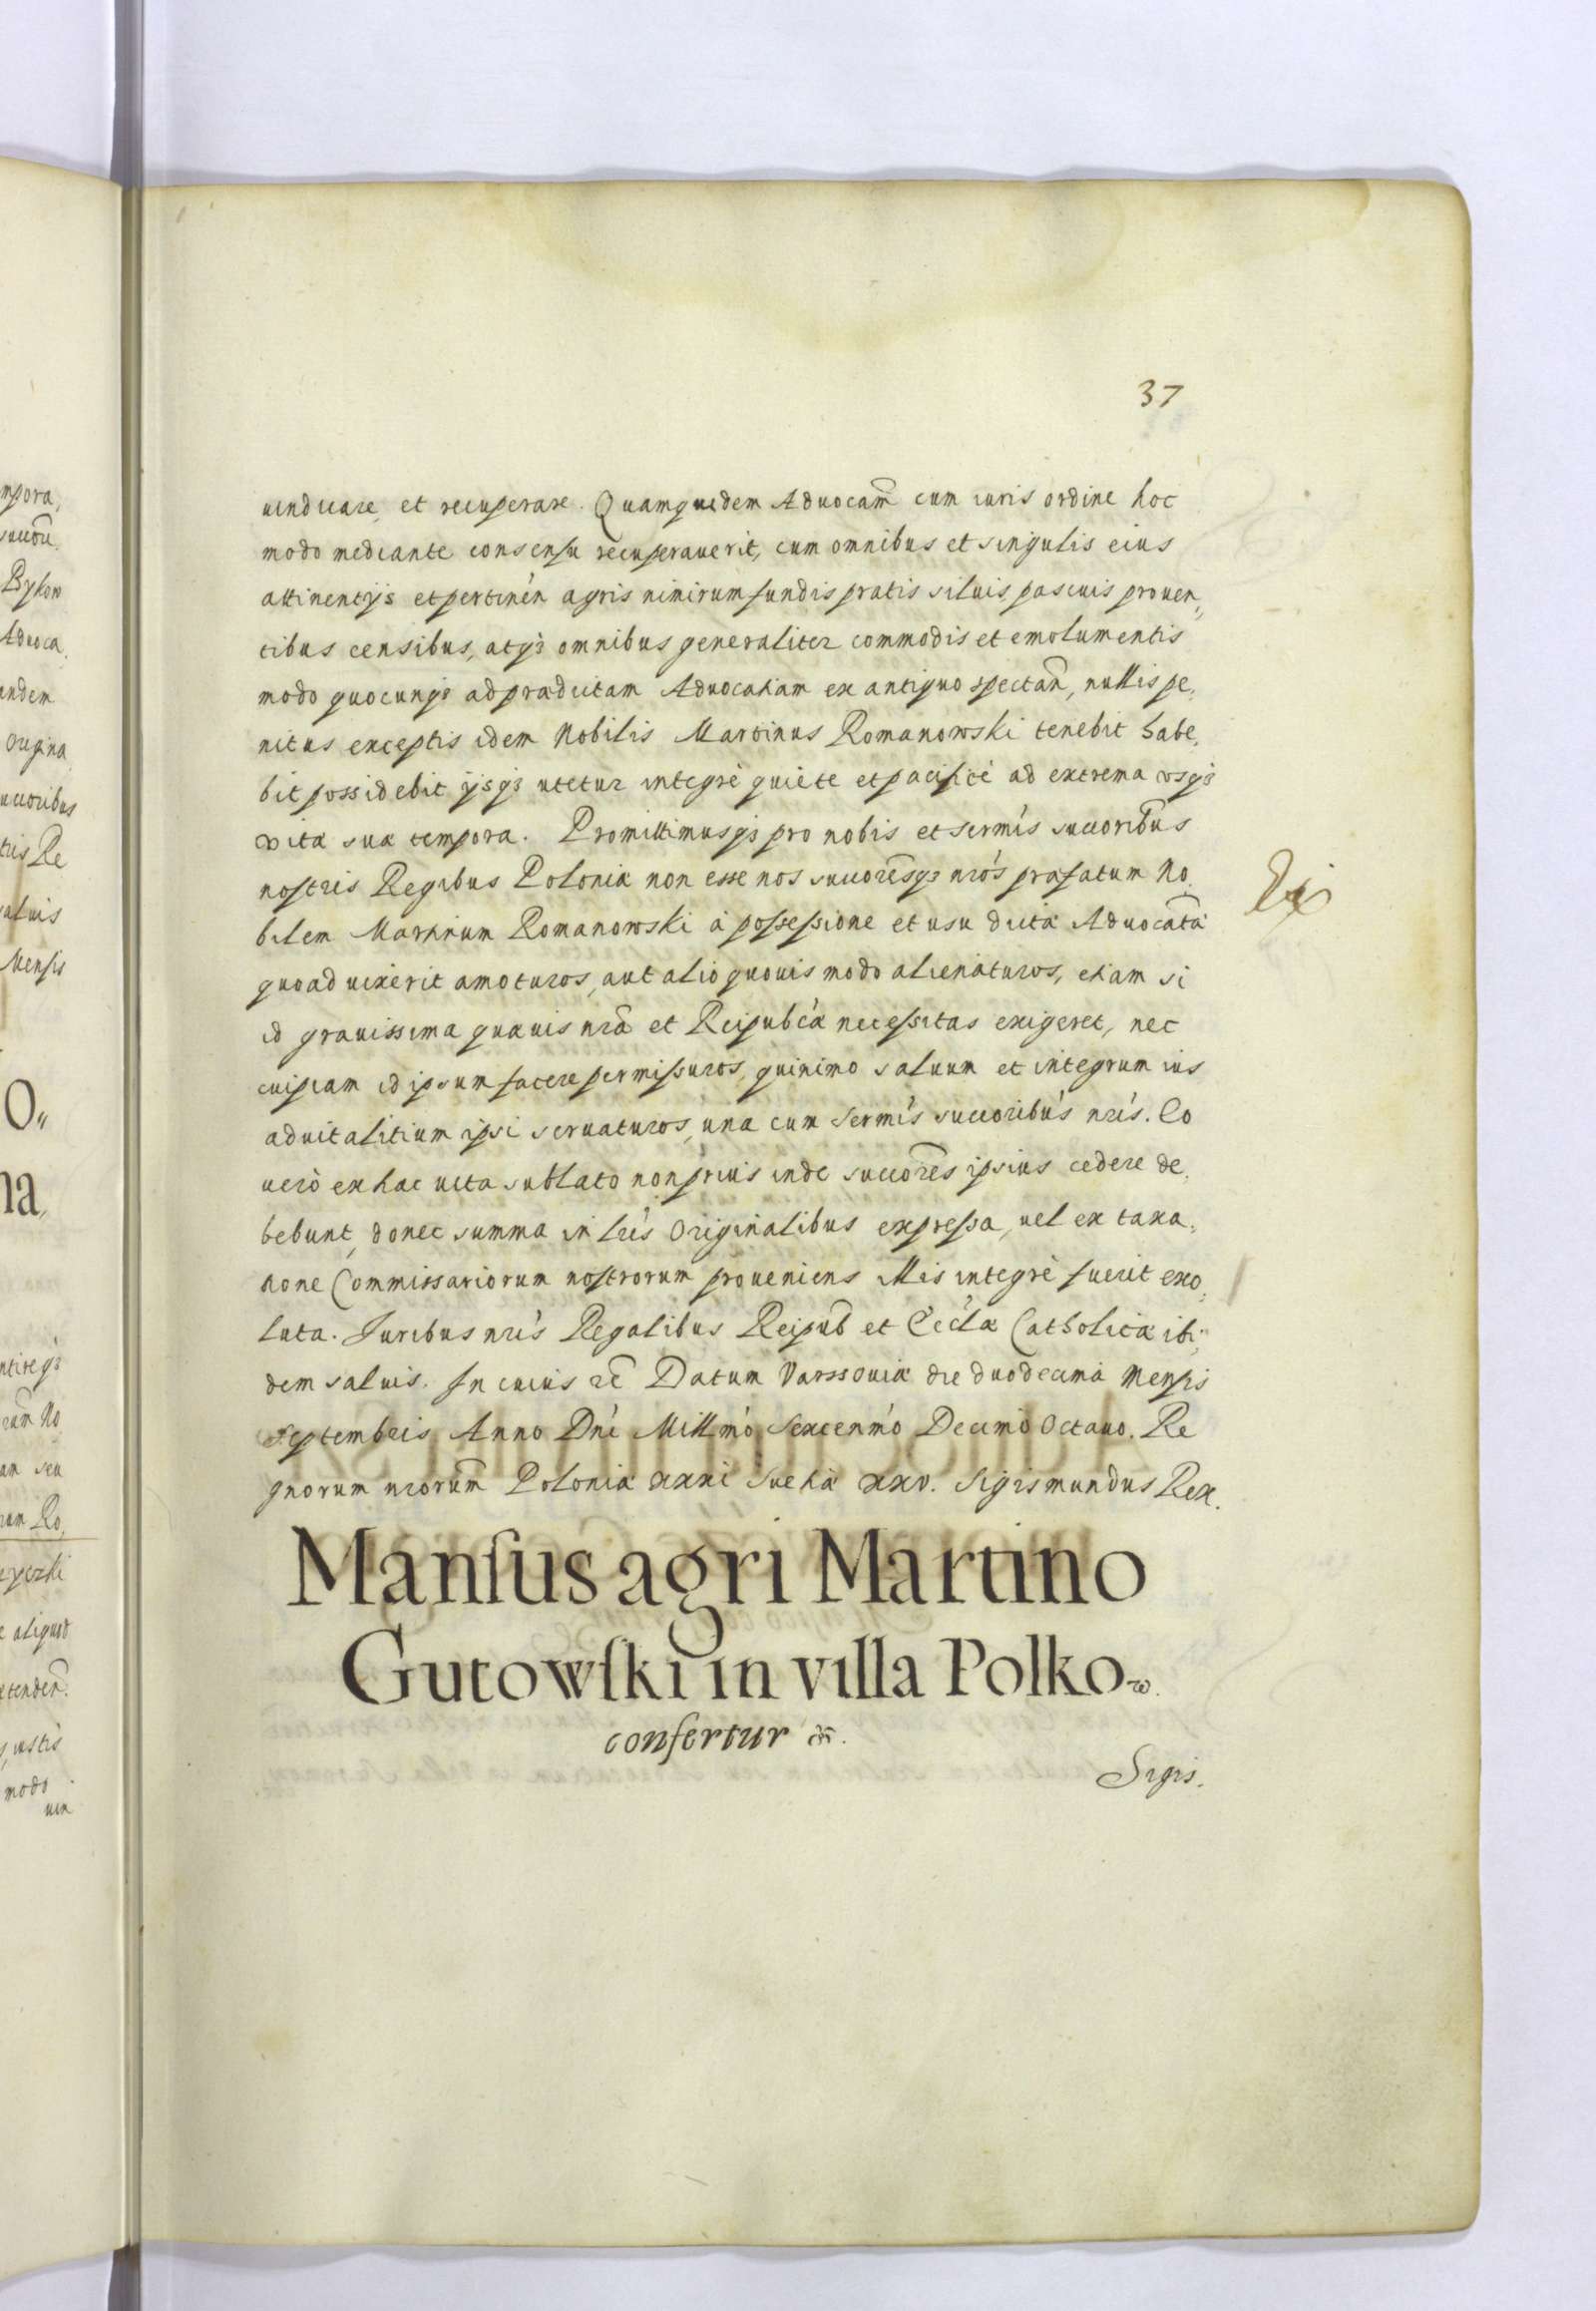 37
uendicare, et recuperare. Quamquidem Aduocam̃ cum iuris ordine hoc
modo mediante consensu recuperauerit, cum omnibus et singulis eius
attinentijs et pertineñ agris nimirum fundis pratis siluis pascuis prouen„
tibus censibus, atqȝ omnibus generaliter commodis et emolumentis
modo quocunqȝ ad prædictam Aduocatiam ex antiquo spectañ, nullis pe,
nitus exceptis idem Nobilis Martinus Romanowski tenebit habe,
bit possidebit ijsqȝ utetur integrè quiete et pacificè ad extrema vsqȝ
vitæ suæ tempora. Promittimusqȝ pro nobis et sermis succoribus
nostris Regibus Poloniæ non esse nos succoresqȝ nros præfatum No,
bilem Martinum Romanowski à possessione et usu dictæ Aduocatæ
quoad uixerit amoturos, aut alio quouis modo alienaturos, etiam si
id grauissima quæuis nra et Reipubcæ necessitas exigeret, nec
cuipiam id ipsum facere permissuros, quinimo saluum et integrum ius
aduitalitium ipsi seruaturos, una cum sermis succoribus nris. Eo
uerò ex hac uita sublato non prius inde succores ipsius cedere de,
bebunt, donec summa in lris Originalibus expressa, uel ex taxa,
tione Commissariorum nostrorum proueniens illis integrè fuerit exo,
luta. Juribus nris Regalibus Reipub et Eccla Catholicæ ibi„
dem saluis. In cuius re Datum Varssouiæ die duodecima Mensis
Septembris Anno Dni Millmo Sexcenmo Decimo Octauo. Re
gnorum nrorum Poloniæ xxxi Suetiæ xxv. Sigismundus Rex.
Manſus agri Martino
Gutowſki in villa Polkow.
confertur &c.
Sigis.